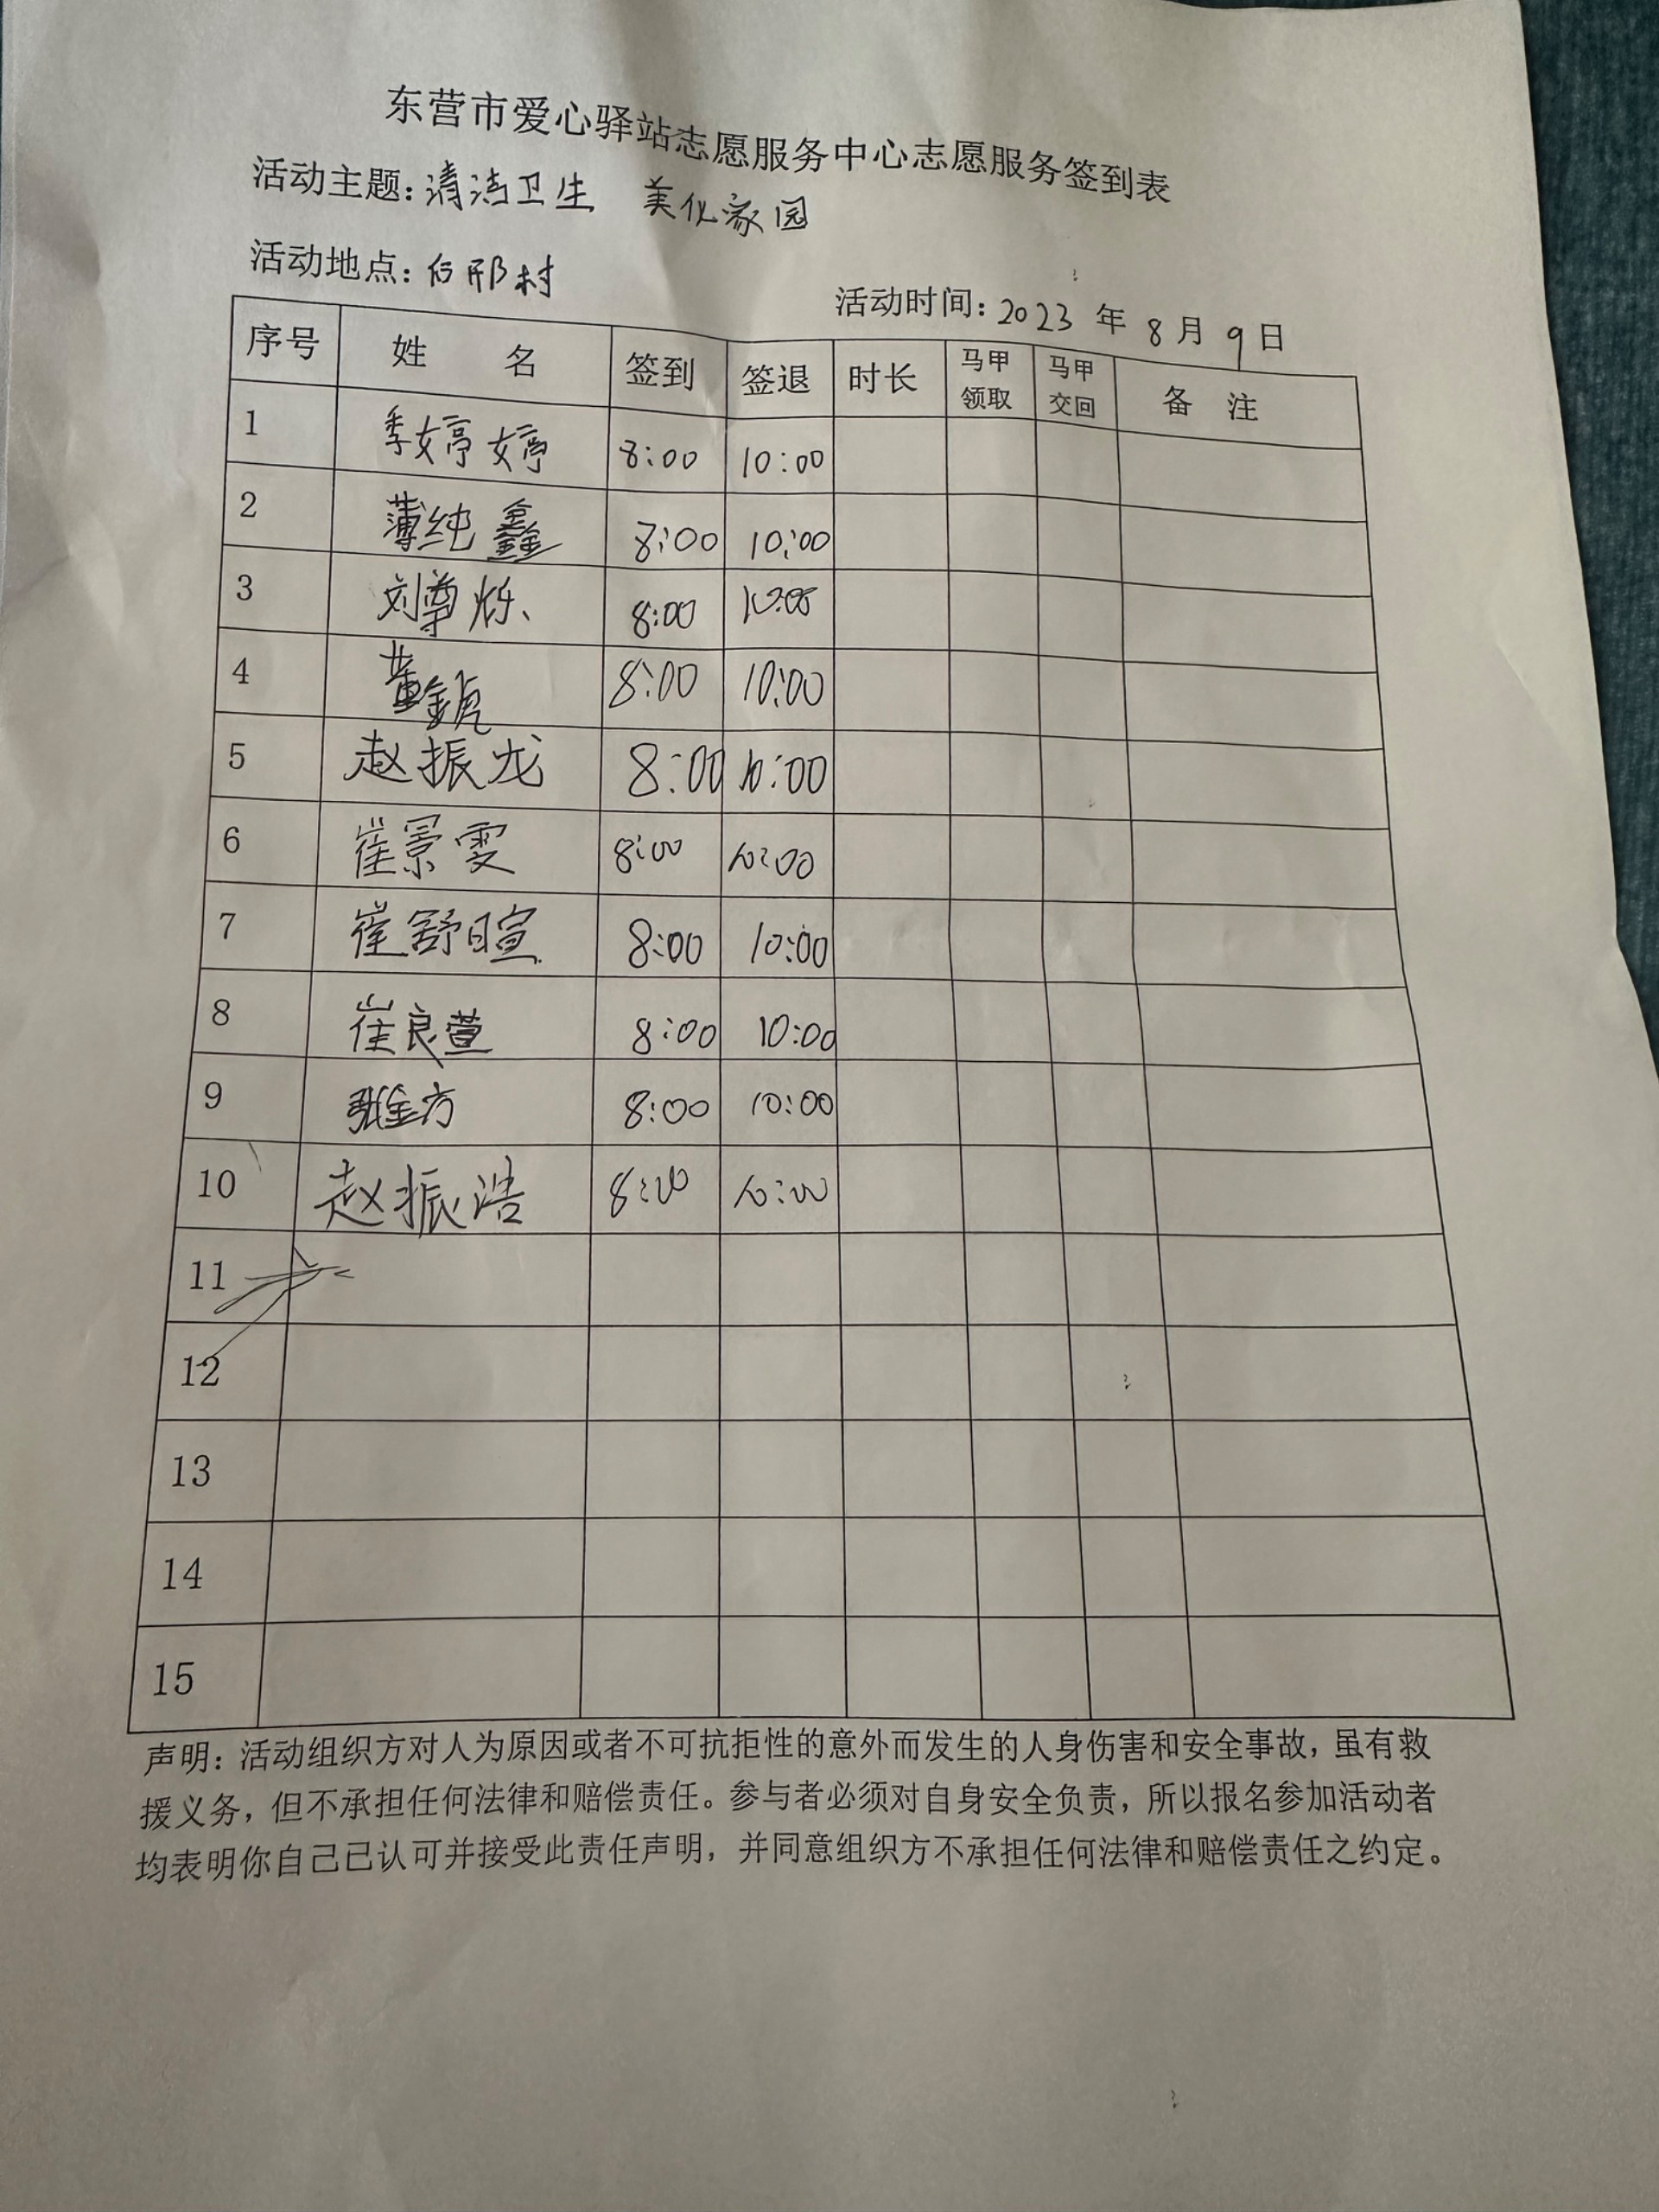 东营市爱心驿站志愿服务中心志愿服务签到表
活动主题：清洁卫生 美化家园
活动地点：后邢村
活动时间：2023年8月9日
序号 姓名 签到 签退 时长 马甲领取 马甲交回 备注
1 季婷婷 8:00 10:00
2 薄纯鑫 8:00 10:00
3 刘尊烁 8:00 10:00
4 8:00 10:00
5 赵振龙 8:00 10:00
6 崔景雯 8:00 10:00
7 崔舒暄 8:00 10:00
8 崔良萱 8:00 10:00
9 张金方 8:00 10:00
10 赵振浩 8:00 10:00
11
12
13
14
15
声明：活动组织方对人为原因或者不可抗拒性的意外而发生的人身伤害和安全事故，虽有救
援义务，但不承担任何法律和赔偿责任。参与者必须对自身安全负责，所以报名参加活动者
均表明你自己已认可并接受此责任声明，并同意组织方不承担任何法律和赔偿责任之约定。